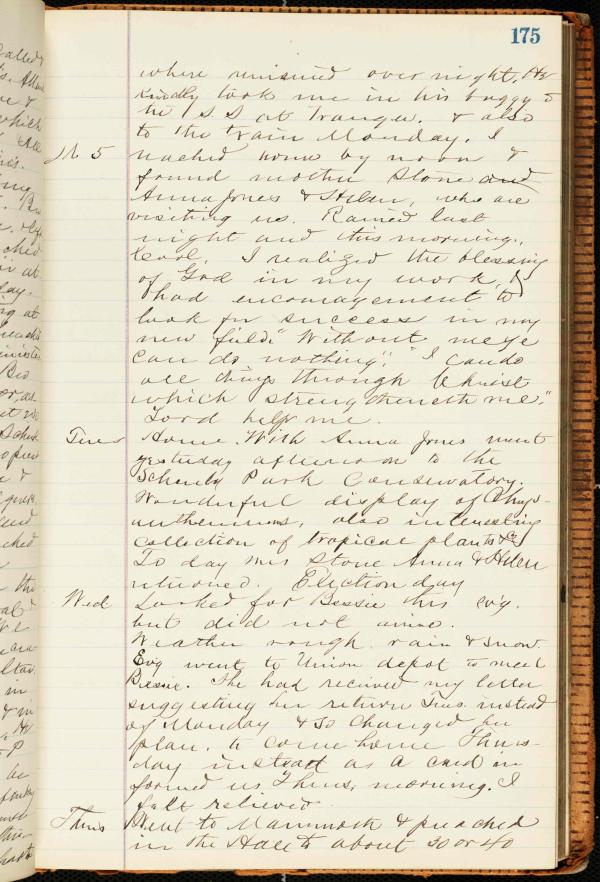 175
where remained over night. He
kindly took me in his buggy to
the S.S at Tranger. & also
to the train Monday. I
reached home by noon &
found mother Stone and
Anna Jones & Helen, who are
visiting us. Rained last
night and this morning.
Cool. I realized the blessing
of God in my work, &
had encouragement to
look for success in my
new field. "Without me ye
can do nothing". "I can do
all things through Christ
which strengtheneth me."
Lord help me.
Tues Home. With Anna Jones went
yesterday afternoon to the
Schenly Park Conservatory.
Wonderful display of Chrys-
anthemums, also interesting
collection of tropical plants &c
To day Mrs Stone Anna & Helen
returned. Election day
Wed Looked for Bessie this ev'g.
but did not arrive.
Weather rough rain & snow.
Ev'g went to Union depot to meet
Bessie. She had received my letter
suggesting her return Tues. instead
of Monday & so changed her
plan, to come home Thurs-
day instead as a card in-
formed us Thurs. morning. I
felt relieved.
Thurs Went to Mammoth & preached
in the Hall to about 30 or 40